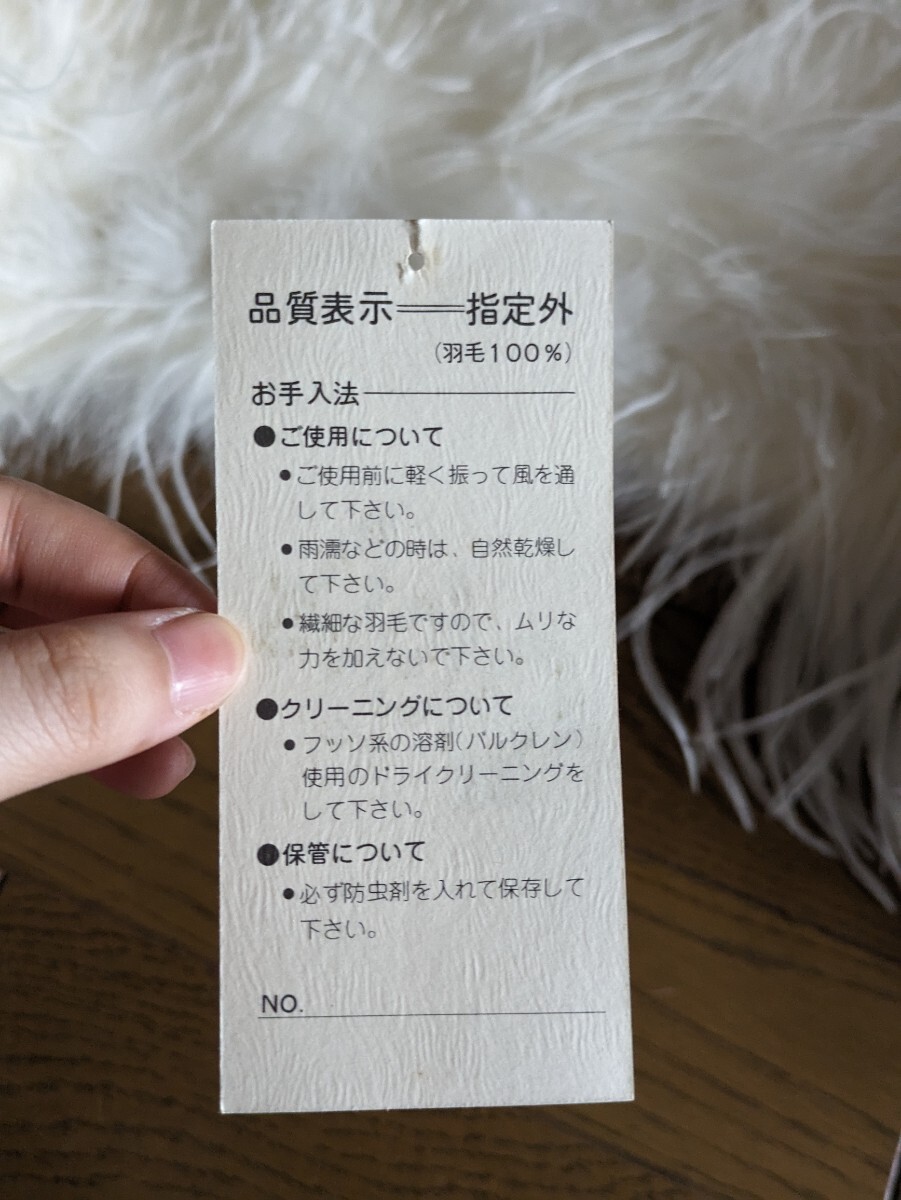 品質表示══指定外
(羽毛100%)
お手入法
●ご使用について
●ご使用前に軽く振って風を通
して下さい。
●雨濡などの時は、自然乾燥し
て下さい。
●繊細な羽毛ですので、ムリな
力を加えないで下さい。
●クリーニングについて
●フッソ系の溶剤(バルクレン)
使用のドライクリーニングを
して下さい。
●保管について
●必ず防虫剤を入れて保存して
下さい。
NO.